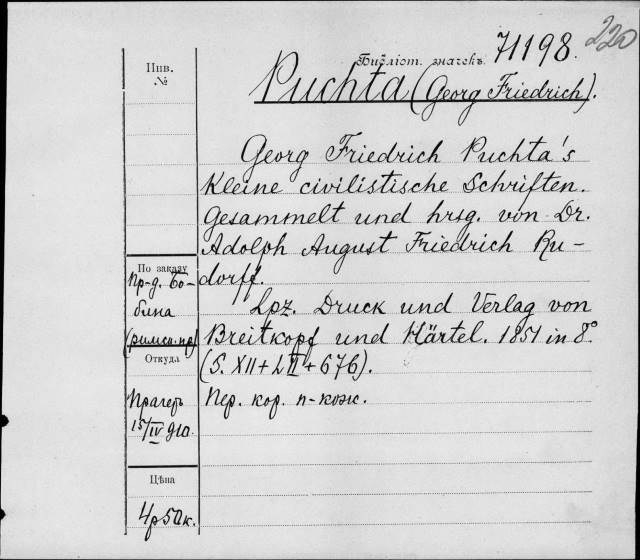 220
Библіот. значекъ 71198.
Инв.
№
Puchta (Georg Friedrich).
Georg Friedrich Puchta's
Kleine civilistische Schriften.
Gesammelt und hrsg. von Dr.
Adolph August Friedrich Ru-
dorff.
Lpz. Druck und Verlag von
Breitkopf und Härtel. 1851 in 8°
(S. XII + LII + 676).
Пер. кор. п-кож.
По заказу
Пр-д. Бо-
бина
(римск. пр)
Откуда
Прагеръ
15/IV 910.
Цѣна
4р50к.